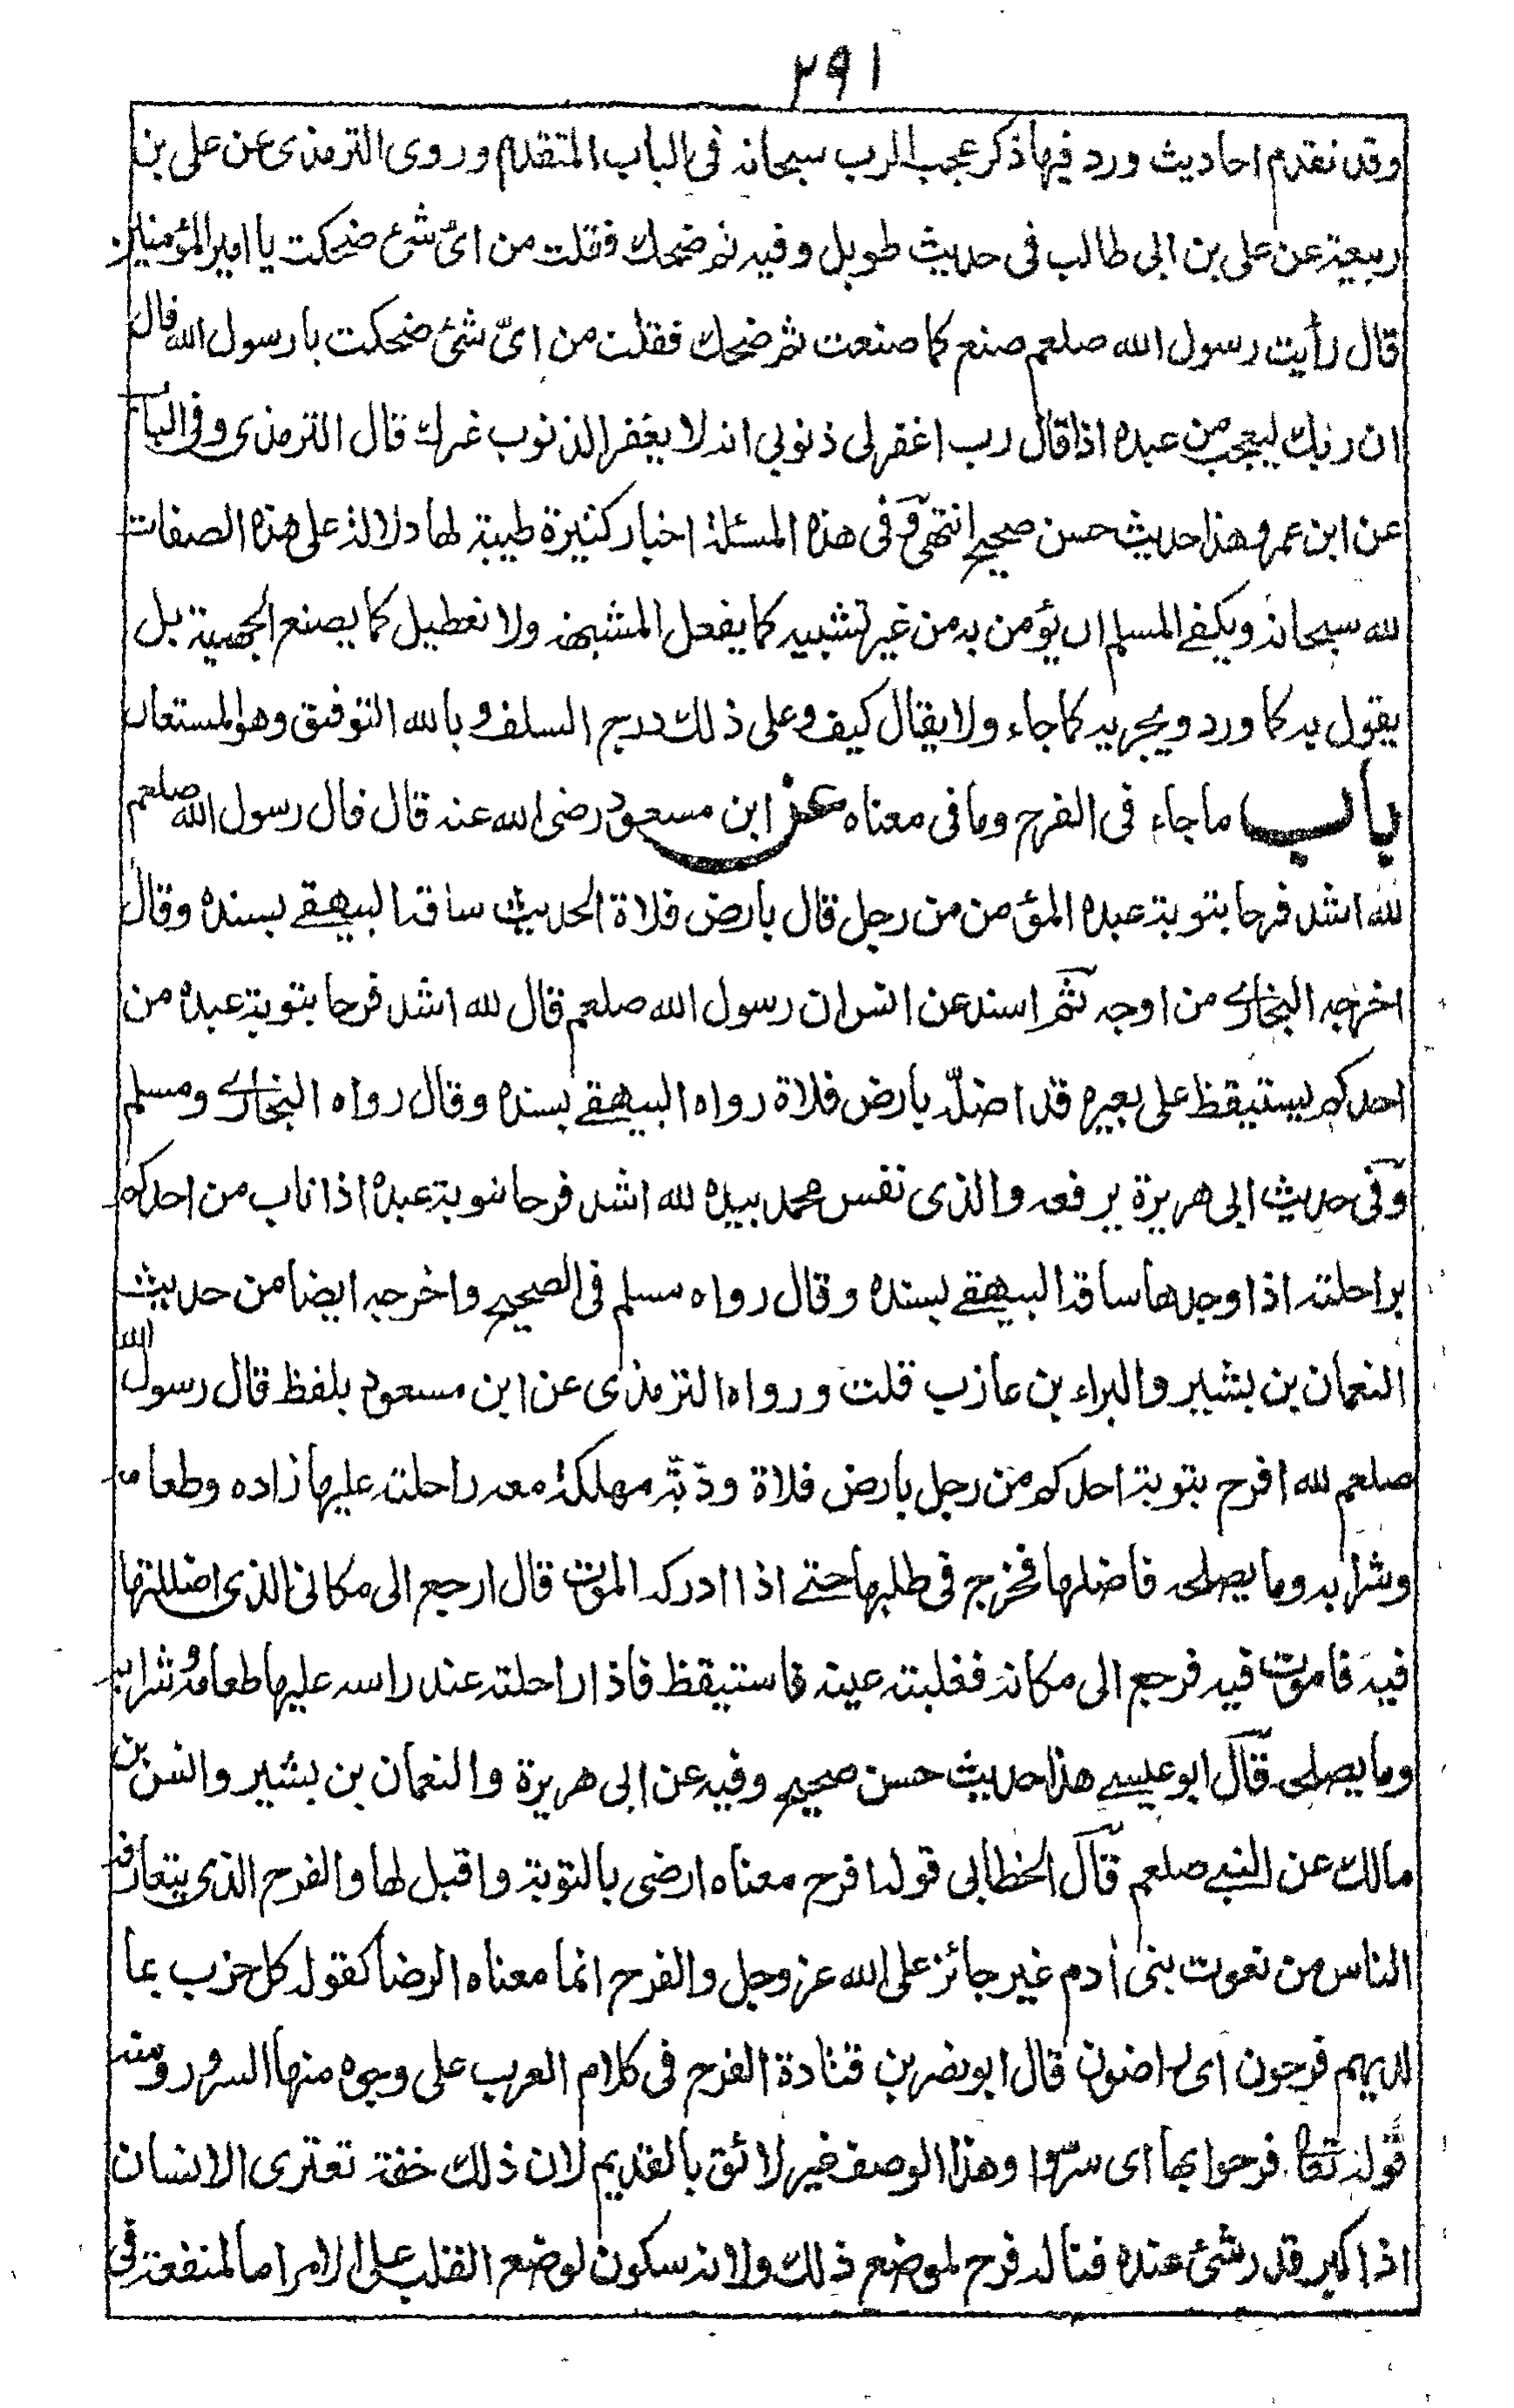 ٢٩١
وقد تقدم احاديث ورد فيها ذكر عجب الرب سبحانه فى الباب المتقدم وروى الترمذى عن على بن
ربيعة عن على بن ابى طالب فى حديث طويل وفيه ثم ضحك فقلت من اىّ شئ ضحكت يا امير المؤمنين
قال رأيت رسول الله صلعم صنع كما صنعت ثم ضحك فقلت من اىّ شئ ضحكت يا رسول الله قال
ان ربك ليعجب من عبده اذا قال رب اغفر لى ذنوبى انه لا يغفر الذنوب غيرك قال الترمذى وفى الباب
عن ابن عمر وهذا حديث حسن صحيح انتهى وفى هذه المسئلة اخبار كثيرة طيبة لها دلالة على هذه الصفات
لله سبحانه ويكفے المسلم ان يؤمن به من غير تشبيه كما يفعل المشبهة ولا تعطيل كما يصنع الجهمية بل
يقول به كما ورد ويجريه كما جاء ولا يقال كيف وعلى ذلك درج السلف وبالله التوفيق وهو المستعان
باب ما جاء فى الفرح وما فى معناه عن ابن مسعود رضى الله عنه قال قال رسول الله صلعم
لله اشد فرحا بتوبة عبده المؤمن من رجل قال بارض فلاة الحديث ساقه البيهقے بسنده وقال
اخرجه البخارے من اوجه ثم اسند عن انس ان رسول الله صلعم قال لله اشد فرحا بتوبة عبده من
احدكم يستيقظ على بعيره قد اضلّه بارض فلاة رواه البيهقے بسنده وقال رواه البخارے ومسلم
وفى حديث ابى هريرة يرفعه والذى نفس محمد بيده لله اشد فرحا بتوبة عبده اذا تاب من احدكم
براحلته اذا وجدها ساقه البيهقے بسنده وقال رواه مسلم فى الصحيح واخرجه ايضا من حديث
النعمان بن بشير والبراء بن عازب قلت ورواه الترمذى عن ابن مسعود بلفظ قال رسول الله
صلعم لله افرح بتوبة احدكم من رجل بارض فلاة ودّيّة مهلكة معه راحلته عليها زاده وطعامه
وشرابه وما يصلحه فاضلها فخرج فى طلبها حتے اذا ادركه الموت قال ارجع الى مكانى الذى اضللتها
فيه فاموت فيه فرجع الى مكانه فغلبته عينه فاستيقظ فاذا راحلته عند راسه عليها طعامه وشرابه
وما يصلحه قال ابو عيسے هذا حديث حسن صحيح وفيه عن ابى هريرة والنعمان بن بشير وانس بن
مالك عن النبے صلعم قال الخطابى قوله افرح معناه ارضى بالتوبة واقبل لها والفرح الذى يتعارفه
الناس من نعوت بنى آدم غير جائز على الله عز وجل والفرح انما معناه الرضا كقوله كل حزب بما
لديهم فرحون اى راضون قال ابو نصر بن قتادة الفرح فى كلام العرب على وجوه منها السرور ومنه
قوله تعا فرحوا بها اى سرّوا وهذا الوصف غير لائق بالقديم لان ذلك خفة تعترى الانسان
اذا كبر قدر شئ عنده فناله فرح لموضع ذلك ولانه سكون لوضع القلب على الامر اما لمنفعة فى